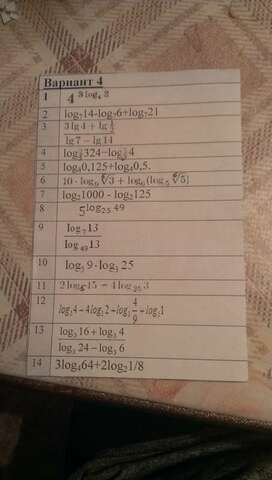 Вариант 4
1 4^{3log₄ 3}
2 log₇14-log₇6+log₇21
3 (3 lg 4 + lg 1/2) / (lg 7 − lg 14)
4 324−log 4
5 log₄0,125+log₄0,5.
6 10 · log₉ ∛3 + log₆(log₅ ⁶√5)
7 log₂1000 - log₂125
8 5^{log₂₅ 49}
9 log₇13 / log₄₉13
10 log₅ 9 · log₃ 25
11 2 15 − 4 log₂₅ 3
12 log₃4 − 4log₃2 + log₃ 4/9 + log₃1
13 (log₃ 16 + log₃ 4) / (log₃ 24 − log₃ 6)
14 3log₄64+2log₂1/8